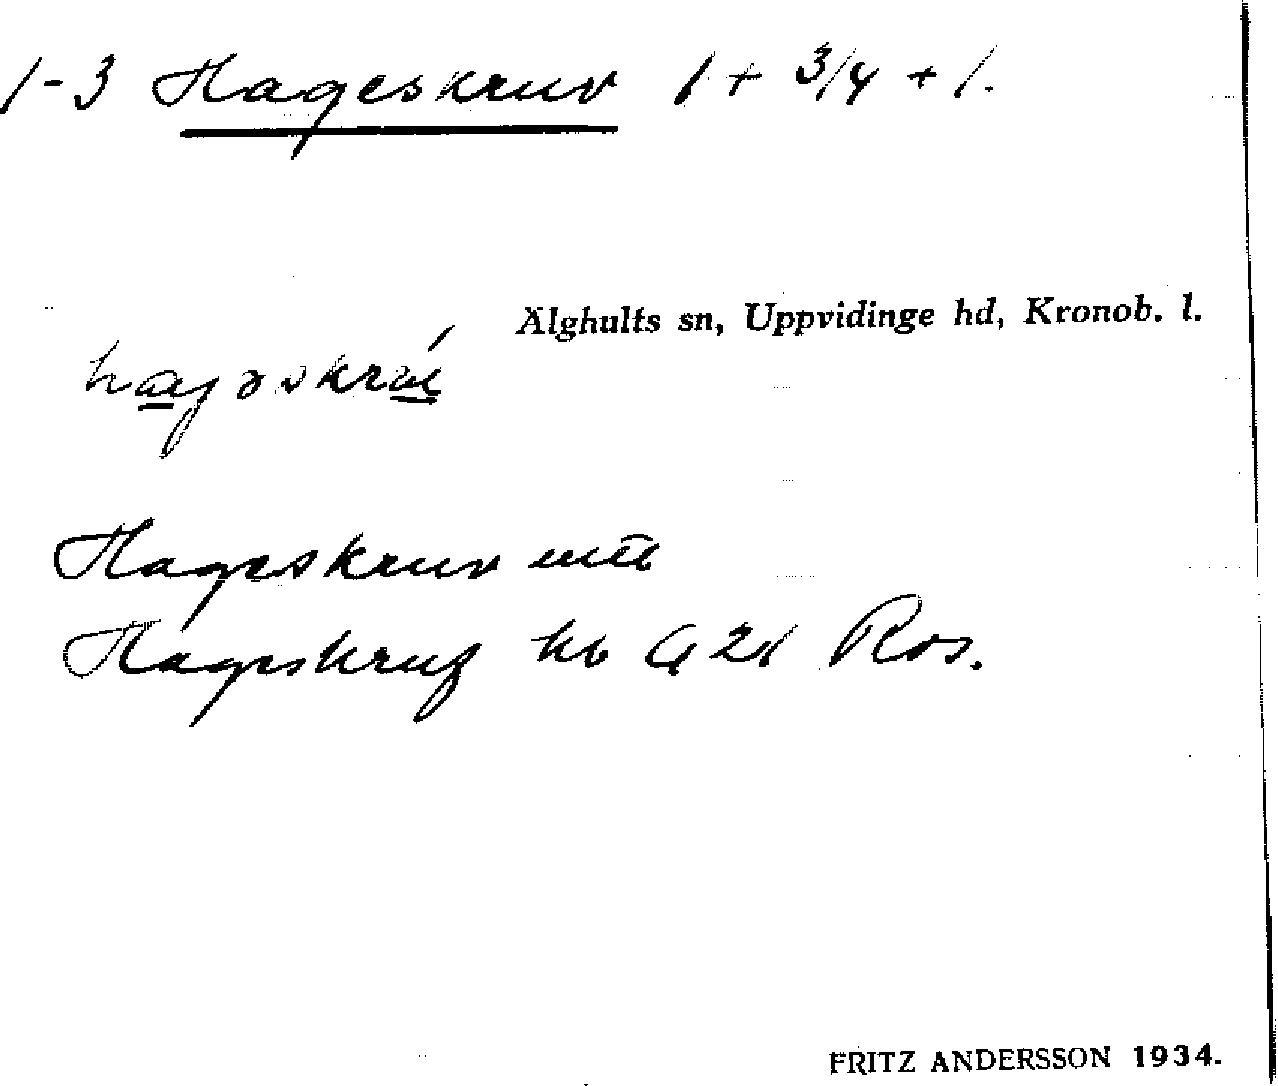 1-3 Hageskruv 1 + 3/4 + 1.
Älghults sn, Uppvidinge hd, Kronob. l.
Hageskruv
Hageskruf hb G 21 Ros.
FRITZ ANDERSSON 1934.